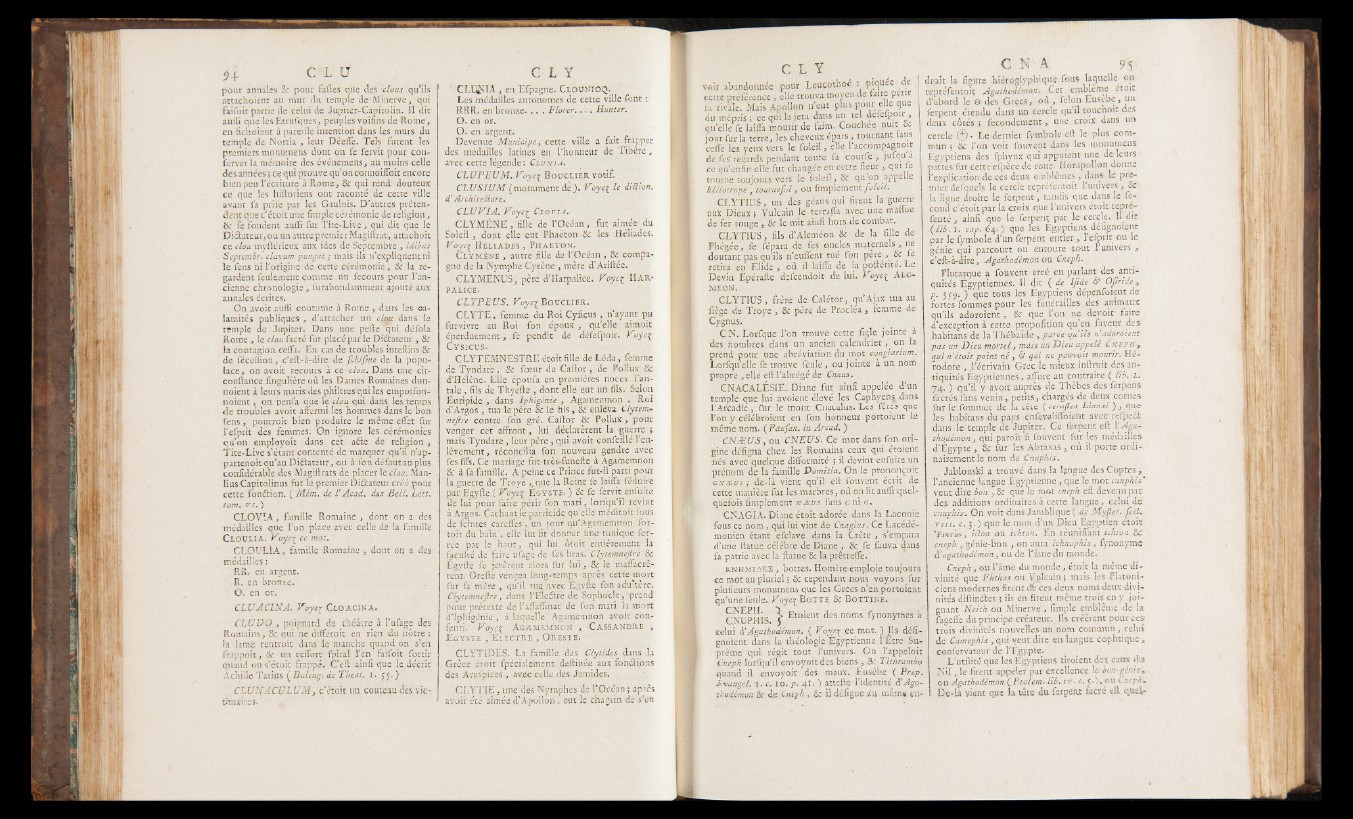 94 C L U
pour annales & pour fastes que des clous qu'ils
attachoient au mur du temple de Minerve, qui
faisoit partie de celui de Jupiter-Capitolin. Il dit
aussi que les Etrusques, peuples voisins de Rome,
en fichoient à pareille intention dans les murs du
temple de Nortia, leur Déesse. Tels furent les
premiers monumens dont on se servit pour con-
server la mémoire des événemens, au moins celle
des années; ce qui prouve qu'on connoissoit encore
bien peu l'écriture à Rome, & qui rend douteux
ce que les historiens ont raconté de cette ville
avant sa prise par les Gaulois. D'autres préten-
dent que c'étoit une simple cérémonie de religion,
& se fondent aussi sur Tite-Live, qui dit que le
Dictateur, ou un autre premier Magistrat, attachoit
ce clou mystérieux aux ides de Septembre, idibus
Septembr. clavum pangat; mais ils n'expliquent ni
le sens ni l'origine de cette cérémonie, & la re-
gardent seulement comme un secours pour l'an-
cienne chronologie, surabondamment ajouté aux
annales écrites.
On avoit aussi coutume à Rome, dans les ca-
lamités publiques, d'attacher un clou dans le
temple de Jupiter. Dans une peste qui désola
Rome, le clou sacré fut placé par le Dictateur, &
la contagion cessa. En cas de troubles intestins &
de sécession, c'est-à-dire de schisme de la popu-
lace, on avoit recours à ce clou. Dans une cir-
constance singulière où les Dames Romaines don-
noient à leurs maris des philtres qui les empoison-
noient, on pensa que le clou qui dans les temps
de troubles avoit affermi les hommes dans le bon
sens, pourroit bien produire le même effet sur
l'esprit des femmes. On ignore les cérémonies
qu'on employoit dans cet acte de religion,
Tite-Live s'étant contenté de marquer qu'il n'ap-
partenoit qu'au Dictateur, ou à son défaut au plus
considérable des Magistrats de placer le clou. Man-
lius Capitolinus fut le premier Dictateur créé pour
cette fonction. ( Mém. de l'Acad. des Bell. Lett.
tom. VI. )
CLOVIA, famille Romaine, dont on a des
médailles que l'on place avec celle de la famille
CLOULIA. Voyez ce mot.
CLOULIA, famille Romaine, dont on a des
médailles :
RR. en argent.
R. en bronze.
O. en or.
CLUACINA. Voyez CLOACINA.
CLUDO, poignard de théâtre à l'usage des
Romains, & qui ne différoit en rien du nôtre;
la lame rentroit dans le manche quand on s'en
frappoit, & un ressort spiral l'en faisoit sortir
quand on s'étoit frappé. C'est ainsi que le décrit
Achille Tatius ( Buleng. de Theat. 1. 55. )
CLUNACULUM, c'étoit un couteau des vic-
timaires.
C L Y
CLUNIA, en Espagne. CLOUNIOQ.
Les médailles autonomes de cette ville sont :
RRR. en bronze. . . . Florez. . . . Hunter.
O. en or.
O. en argent.
Devenue Municipe, cette ville a fait frapper
des médailles latines en l'honneur de Tibère,
avec cette légende : CLUNIA.
CLUPEUM. Voyez BOUCLIER votif.
CLUSIUM ( monument de ). Voyez le diction.
d'Architecture.
CLUVIA. Voyez CLOVIA.
CLYMÈNE, fille de l'Océan, fut aimée du
Soleil, dont elle eut Phaeton & les Héliades.
Voyez HELIADES, PHAETON.
CLYMÈNE, autre fille de l'Océan, & compa-
gne de la Nymphe Cyrène, mère d'Aristée.
CLYMENUS, père d'Harpalice. Voyez HAR-
PALICE.
CLYPEUS. Voyez BOUCLIER.
CLYTE, femme du Roi Cysicus, n'ayant pu
survivre au Roi son époux, qu'elle aimoit
éperduement, se pendit de désespoir. Voyez
CYSICUS.
CLYTEMNESTRE étoit fille de Léda, femme
de Tyndare, & sœur de Castor, de Pollux &
d'Hélène. Elle épousa en premières noces Tan-
tale, fils de Thyeste, dont elle eut un fils. Selon
Euripide, dans Iphigénie, Agamemnon, Roi
d'Argos, tua le père & le fils, & enleva Clytem-
nestre contre son gré. Castor & Pollux, pour
venger cet affront, lui déclarèrent la guerre;
mais Tyndare, leur père, qui avoit conseillé l'en-
lèvement, réconcilia son nouveau gendre avec
ses fils. Ce mariage fut très-funeste à Agamemnon
& à sa famille. A peine ce Prince fut-il parti pour
la guerre de Troye, que la Reine se laissa séduire
par Egyste ( Voyez EGYSTE ) & se servit ensuite
de lui pour faire périr son mari, lorsqu'il revint
à Argos. Cachant le parricide qu'elle méditoit sous
de feintes caresses, un jour qu'Agamemnon sor-
toit du bain, elle lui fit donner une tunique fer-
rée par le haut, qui lui ôtoit entièrement la
faculté de faire usage de ses bras. Clytemnestre &
Egyste se jetèrent alors sur lui, & le massacrè-
rent. Oreste vengea long-temps après cette mort
sur sa mère, qu'il tua avec Egyste son adultère.
Clytemnestre, dans l'Electre de Sophocle, prend
pour prétexte de l'assassinat de son mari la mort
d'Iphigénie, à laquelle Agamemnon avoit con-
senti. Voyez AGAMEMNON, CASSANDRE,
EGYSTE, ELECTRE, ORESTE.
CLYTIDES. La famille des Clytides dans la
Grèce étoit spécialement destinée aux fonctions
des Aruspices, avec celle des Jamides.
CLYTIE, une des Nymphes de l'Océan; après
avoir été aimée d'Apollon, eut le chagrin de s'en
C L Y
voir abandonnée pour Leucothoé : piquée de
cette préférence, elle trouva moyen de faire périr
sa rivale. Mais Apollon n'eut plus pour elle que
du mépris; ce qui la jeta dans un tel désespoir,
qu'elle se laissa mourir de faim. Couchée nuit &
jour sur la terre, les cheveux épars, tournant sans
cesse les yeux vers le soleil, elle l'accompagnoit
de ses regards pendant toute sa course, jusqu'à
ce qu'enfin elle fut changée en cette fleur, qui se
tourne toujours vers le soleil, & qu'on appelle
héliotrope, tournesol, ou simplement soleil.
CLYTIUS, un des géans qui firent la guerre
aux Dieux; Vulcain le terrassa avec une massue
de fer rouge, & le mit ainsi hors de combat.
CLYTIUS, fils d'Alcméon & de la fille de
Phégée, se sépara de ses oncles maternels, ne
doutant pas qu'ils n'eussent tué son père, & se
retira en Elide, où il laissa de la postérité. Le
Devin Epéraste descendoit de lui. Voyez ALC-
MEON.
CLYTIUS, frère de Calétor, qu'Ajax tua au
siège de Troye, & père de Procléa, femme de
Cygnus.
CN. Lorsque l'on trouve cette sigle jointe à
des nombres dans un ancien calendrier, on la
prend pour une abréviation du mot congiarium.
Lorsqu'elle se trouve seule, ou jointe à un nom
propre, elle est l'abrégé de Cneus.
CNACALÉSIE. Diane fut ainsi appelée d'un
temple que lui avoient élevé les Caphyens dans
l'Arcadie, sur le mont Cnacalus. Les fêtes que
l'on y célébroient en son honneur portoient le
même nom. ( Pausan. in Arcad. )
CNÆUS, ou CNEUS. Ce mot dans son ori-
gine désigna chez les Romains ceux qui étoient
nés avec quelque difformité; il devint ensuite un
prénom de la famille Domitia. On le prononçoit
GNÆUS; de-là vient qu'il est souvent écrit de
cette manière sur les marbres, où on lit aussi quel-
quefois simplement NÆUS sans c ni G.
CNAGIA. Diane étoit adorée dans la Laconie
sous ce nom, qui lui vint de Cnagius. Ce Lacédé-
monien étant esclave dans la Crète, s'empara
d'une statue célèbre de Diane, & se sauva dans
sa patrie avec la statue & la prêtresse.
ΚΝΗΜΙΔΕΣ, bottes. Homère emploie toujours
ce mot au pluriel; & cependant nous voyons sur
plusieurs monumens que les Grecs n'en portoient
qu'une seule. Voyez BOTTE & BOTTINE.
CNEPH.
CNUPHIS. } Etoient des noms synonymes à
celui d'Agathodémon. ( Voyez ce mot. ) Ils dési-
gnoient dans la théologie Egyptienne l'Être Su-
prême qui régit tout l'univers. On l'appeloit
Cneph lorsqu'il envoyoit des biens, & Tithrambo
quand il envoyoit des maux. Eusèbe ( Prep.
Evangel. 1. c. 10. p. 41. ) atteste l'identité d'Aga-
thodémon & de Cneph, & il désigne au même en-
C N A 95
droit la figure hiéroglyphique sous laquelle on
représentoit Agathodémon. Cet emblême étoit
d'abord le Θ des Grecs, où, selon Eusèbe, un
serpent étendu dans un cercle qu'il touchoit des
deux côtés; secondement, une croix dans un
cercle (+). Le dernier symbole est le plus com-
mun; & l'on voit souvent dans les monumens
Egyptiens des sphynx qui appuient une de leurs
pattes sur cette espèce de roue. Horapollon donne
l'explication de ces deux emblêmes, dans le pre-
mier desquels le cercle représentoit l'univers, &
la ligne droite le serpent, tandis que dans le se-
cond c'étoit par la croix que l'univers étoit repré-
senté, ainsi que le serpent par le cercle. Il dit
( lib. 1. cap. 64. ) que les Egyptiens désignoient
par le symbole d'un serpent entier, l'esprit ou le
génie qui parcouret ou entoure tout l'univers,
c'est-à-dire, Agathodémon ou Cneph.
Plutarque a souvent erré en parlant des anti-
quités Egyptiennes. Il dit ( de Iside & Osiride,
p. 359. ) que tous les Egyptiens dépensoient de
fortes sommes pour les funérailles des animaux
qu'ils adoroient, & que l'on ne devoit faire
d'exception à cette proposition qu'en faveur des
habitans de la Thébaïde, parce qu'ils n'adoroient
pas un Dieu mortel, mais un Dieu appelé CNEPH,
qui n'étoit point né, & qui ne pouvoit mourir. Hé-
rodote, l'écrivain Grec le mieux instruit des an-
tiquités Egyptiennes, assure au contraire ( lib. 2.
74. ) qu'il y avoit auprès de Thèbes des serpens
sacrés sans venin, petits, chargés de deux cornes
sur le sommet de la tête ( cerastes Linnæi ), que
les habitans du pays ensevelissoient avec respect
dans le temple de Jupiter. Ce serpent est l'Aga-
thodémon, qui paroît si souvent sur les médailles
d'Egypte, & sur les Abraxas, où il porte ordi-
nairement le nom de Cnuphis.
Jablonski a trouvé dans la langue des Coptes,
l'ancienne langue Egyptienne, que le mot cnuphis
veut dire bon, & que le mot cneph est devenu par
des additions ordinaires à cette langue, celui de
cnuphis. On voit dans Jamblique ( de Myster. sect.
VIII. c. 3. ) que le nom d'un Dieu Egyptien étoit
Εικτων, icton ou ichton. En réunissant ichton &
cneph, génie-bon, on aura ichnuphis, synonyme
d'agathodémon, ou de l'âme du monde.
Cneph, ou l'âme du monde, étoit la même di-
vinité que Phthas ou Vulcain; mais les Platoni-
ciens modernes firent de ces deux noms deux divi-
nités distinctes; ils en firent même trois en y joi-
gnant Neith ou Minerve, simple emblême de la
sagesse du principe créateur. Ils créèrent pour ces
trois divinités nouvelles un nom commun, celui
de Camephis, qui veut dire en langue cophtique,
conservateur de l'Egypte.
L'utilité que les Egyptiens tiroient des eaux du
Nil, le firent appeler par excellence le bon-génie,
ou Agathodémon ( Ptolem. lib. IV. c. 5. ), ou Cneph.
De-là vient que la tête du serpent sacré est quel-